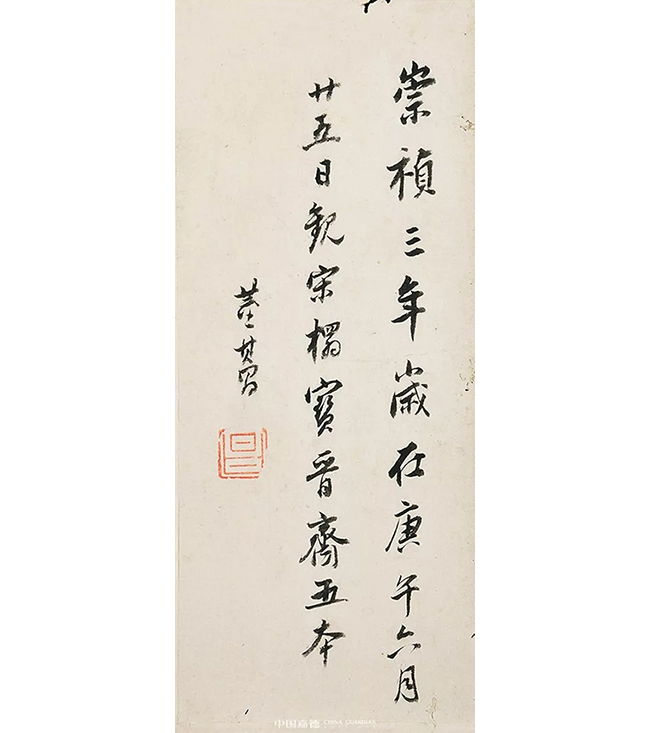 崇禎三年歲在庚午六月
廿五日觀宋榻寶晉齋五本
董其昌
中国嘉德 CHINA GUARDIAN